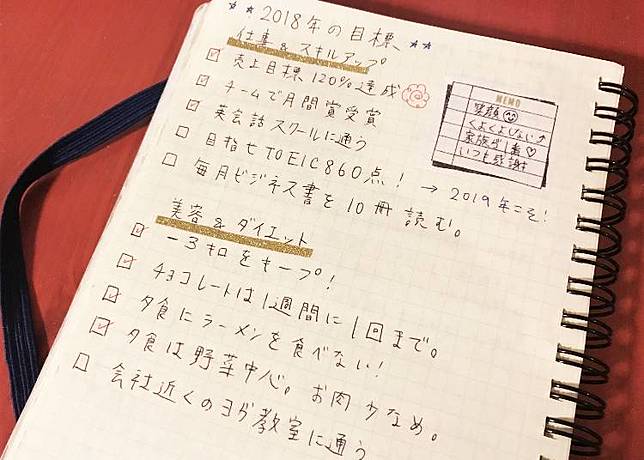 2018年の目標
仕事&スキルアップ
売上目標120%達成
チームで月間賞受賞
英会話スクールに通う
目指せTOEIC860点!
→2019年こそ!
毎月ビジネス書を10冊読む。
MEMO
笑顔
くよくよしない↑
家族が1番♡
いつも感謝
美容&ダイエット
-3キロをキープ!
チョコレートは1週間に1回まで。
夕食にラーメンを食べない!
夕食は野菜中心。お肉少なめ。
会社近くのヨガ教室に通う